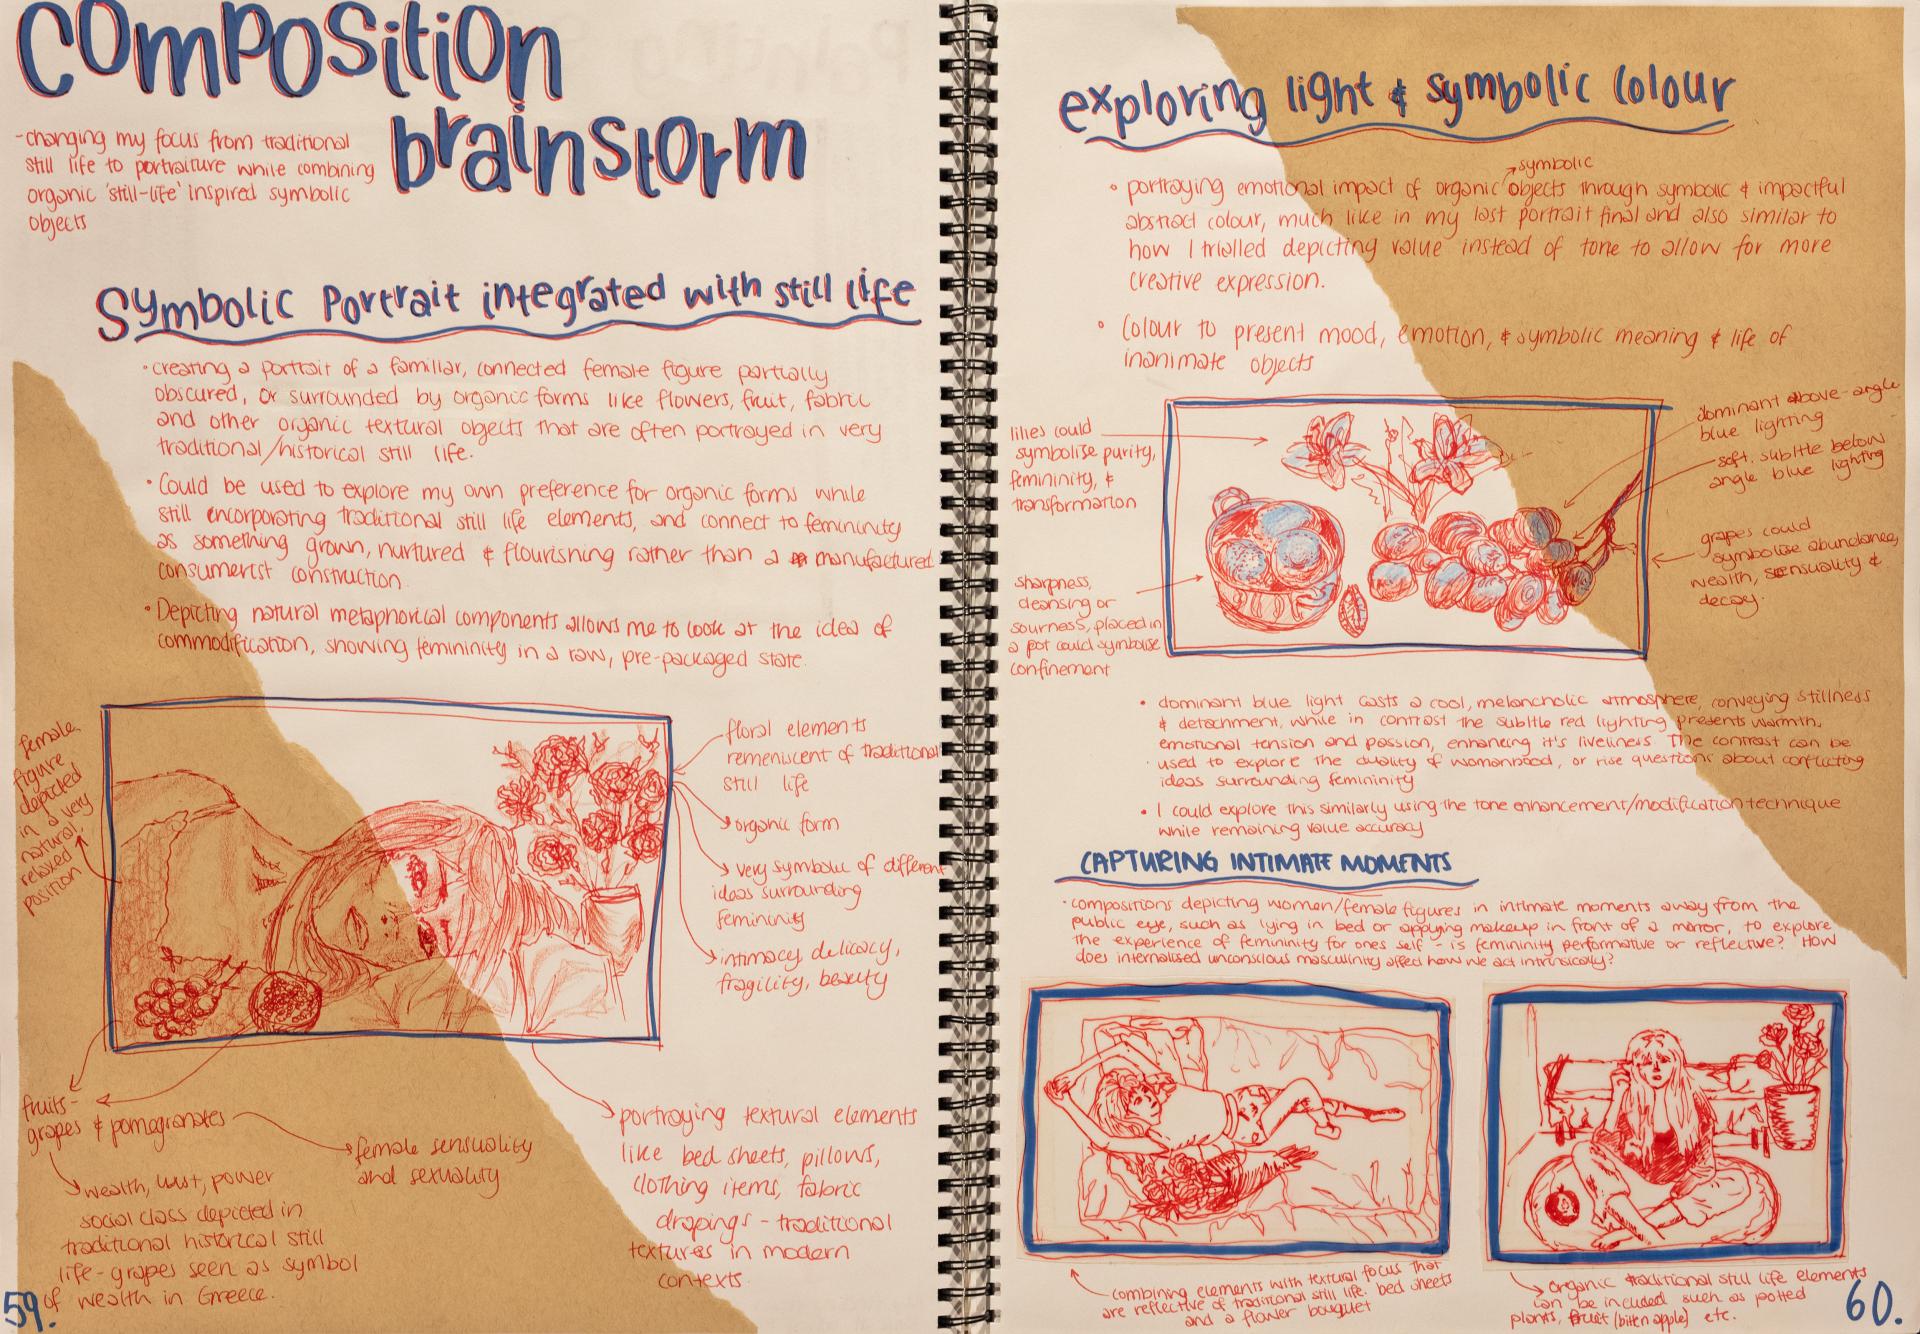 Composition
brainstorm
-changing my focus from traditional
still life to portraiture while combining
organic 'still-life' inspired symbolic
objects
Symbolic Portrait integrated with still life
• creating a portrait of a familiar, connected female figure partially
obscured, or surrounded by organic forms like flowers, fruit, fabric
and other organic textural objects that are often portrayed in very
traditional/historical still life.
• Could be used to explore my own preference for organic forms while
still encorporating traditional still life elements, and connect to femininity
as something grown, nurtured & flourishing rather than a manufactured
consumerist construction.
• Depicting natural metaphorical components allows me to look at the idea of
commodification, showing femininity in a raw, pre-packaged state.
female
figure
depicted
in a very
natural,
relaxed
position
floral elements
remeniscent of traditional
still life
organic form
very symbolic of different
ideas surrounding
femininity
intimacy delicacy,
fragility, beauty
fruits-
grapes & pomegranates
female sensuality
and sexuality
wealth, lust, power
social class depicted in
traditional historical still
life - grapes seen as symbol
of wealth in Greece.
portraying textural elements
like bed sheets, pillows,
clothing items, fabric
drapings - traditional
textures in modern
contexts.
59.
exploring light & symbolic colour
symbolic
• portraying emotional impact of organic objects through symbolic & impactful
abstract colour, much like in my last portrait final and also similar to
how I trialled depicting value instead of tone to allow for more
creative expression.
• Colour to present mood, emotion, & symbolic meaning & life of
inanimate objects
lilies could
symbolise purity,
femininity, &
transformation
sharpness,
cleansing or
sourness, placed in
a pot could symbolise
confinement
dominant above-angle
blue lighting
soft, subltle below
angle blue lighting
grapes could
symbolise abundance,
wealth, sensuality &
decay.
• dominant blue light casts a cool, melancholic atmosphere, conveying stillness
& detachment, while in contrast the subltle red lighting presents warmth,
emotional tension and passion, enhancing it's liveliness. The contrast can be
used to explore the duality of womanhood, or rise questions about conflicting
ideas surrounding femininity
• I could explore this similarly using the tone enhancement/modification technique
while remaining value accuracy
CAPTURING INTIMATE MOMENTS
• compositions depicting women/female figures in intimate moments away from the
public eye, such as lying in bed or applying makeup in front of a mirror, to explore
the experience of femininity for ones self - is femininity performative or reflective? How
does internalised unconscious masculinity affect how we act intrinsically?
combining elements with textural focus that
are reflective of traditional still life. bed sheets
and a flower bouquet
organic traditional still life elements
can be included such as potted
plants, fruit (bitten apple) etc.
60.